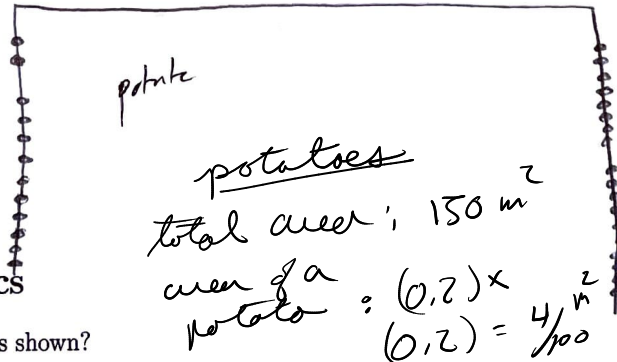 potate
potatoes
total area: 150 m²
area of a
potato : (0,2) x
(0,2) = 4/100 m²
cs
s shown?